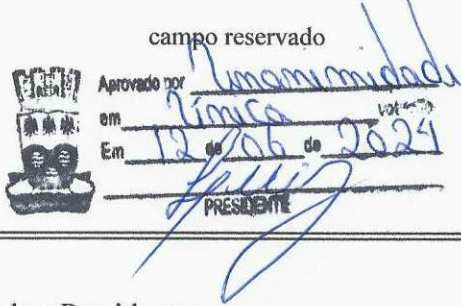 campo reservado
Aprovado por Unanimidade
em Única votação
Em 12 de 06 de 2024
PRESIDENTE
Presidente